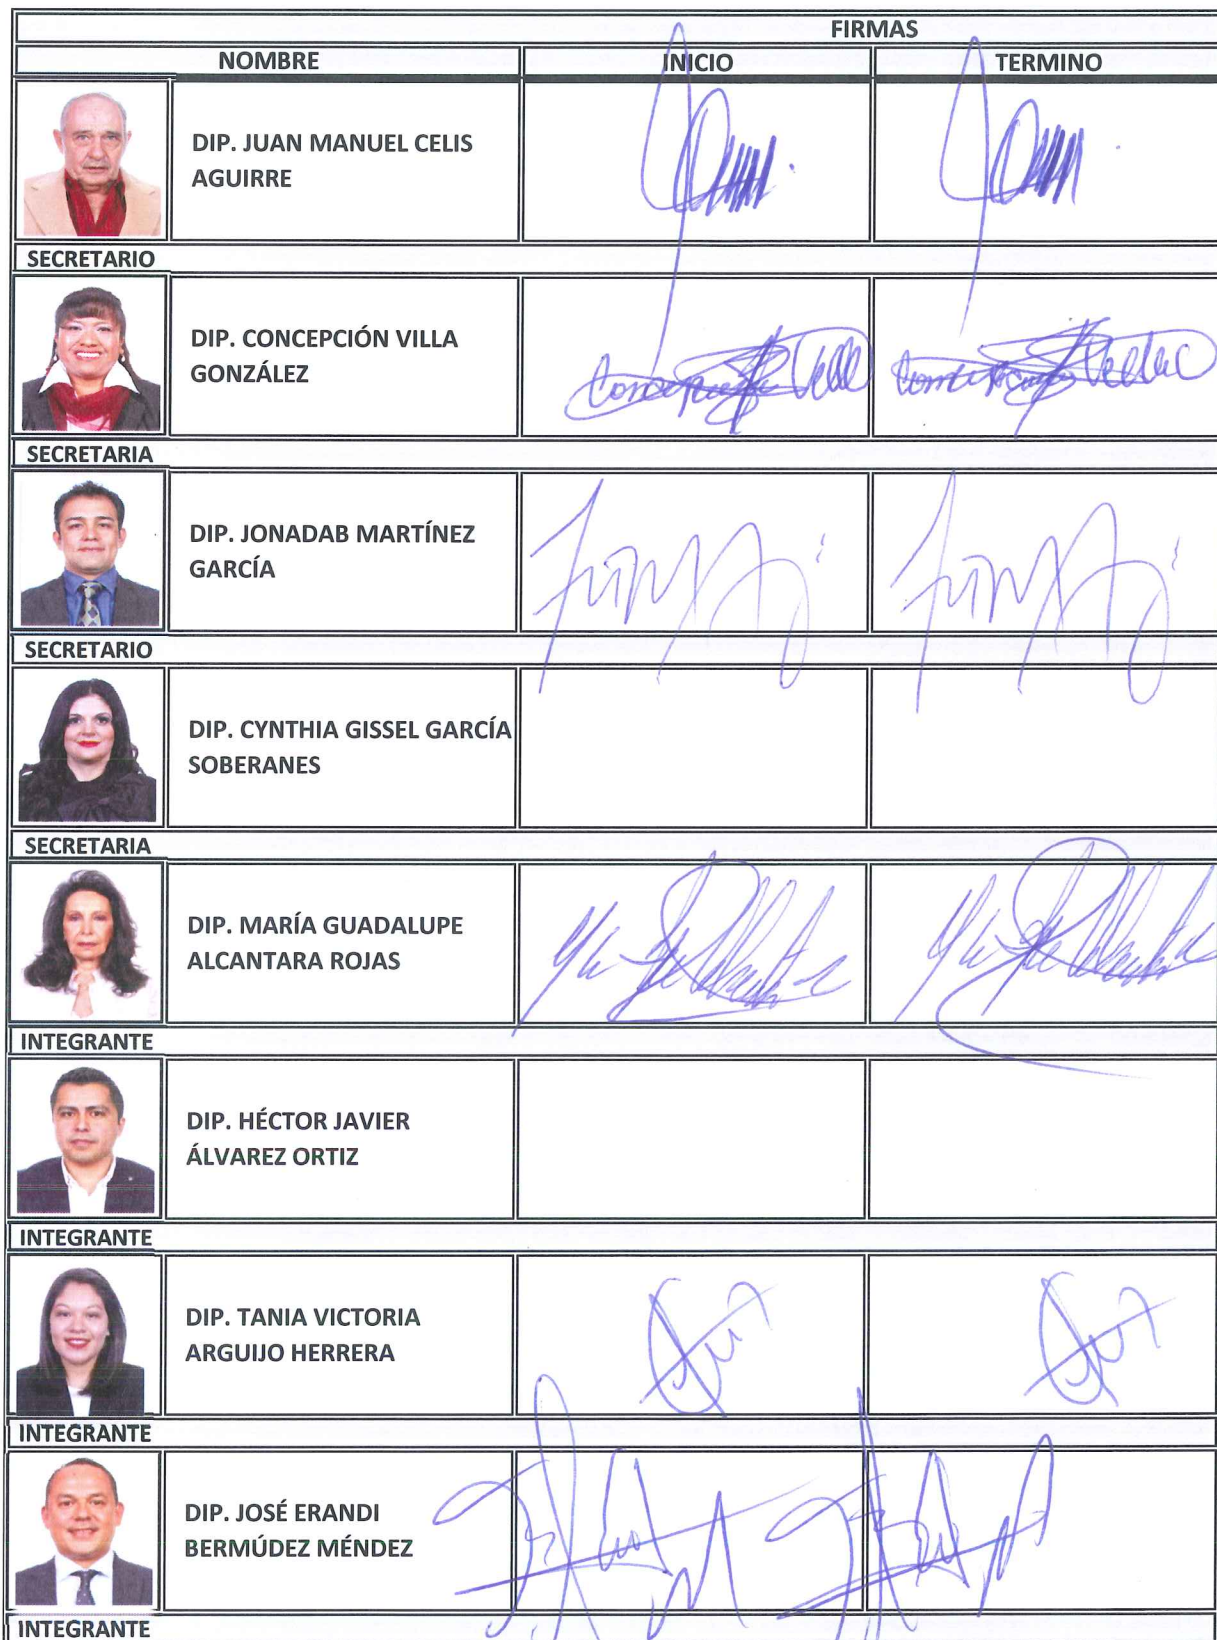 FIRMAS
NOMBRE INICIO TERMINO
DIP. JUAN MANUEL CELIS
AGUIRRE
SECRETARIO
DIP. CONCEPCIÓN VILLA
GONZÁLEZ
SECRETARIA
DIP. JONADAB MARTÍNEZ
GARCÍA
SECRETARIO
DIP. CYNTHIA GISSEL GARCÍA
SOBERANES
SECRETARIA
DIP. MARÍA GUADALUPE
ALCANTARA ROJAS
INTEGRANTE
DIP. HÉCTOR JAVIER
ÁLVAREZ ORTIZ
INTEGRANTE
DIP. TANIA VICTORIA
ARGUIJO HERRERA
INTEGRANTE
DIP. JOSÉ ERANDI
BERMÚDEZ MÉNDEZ
INTEGRANTE